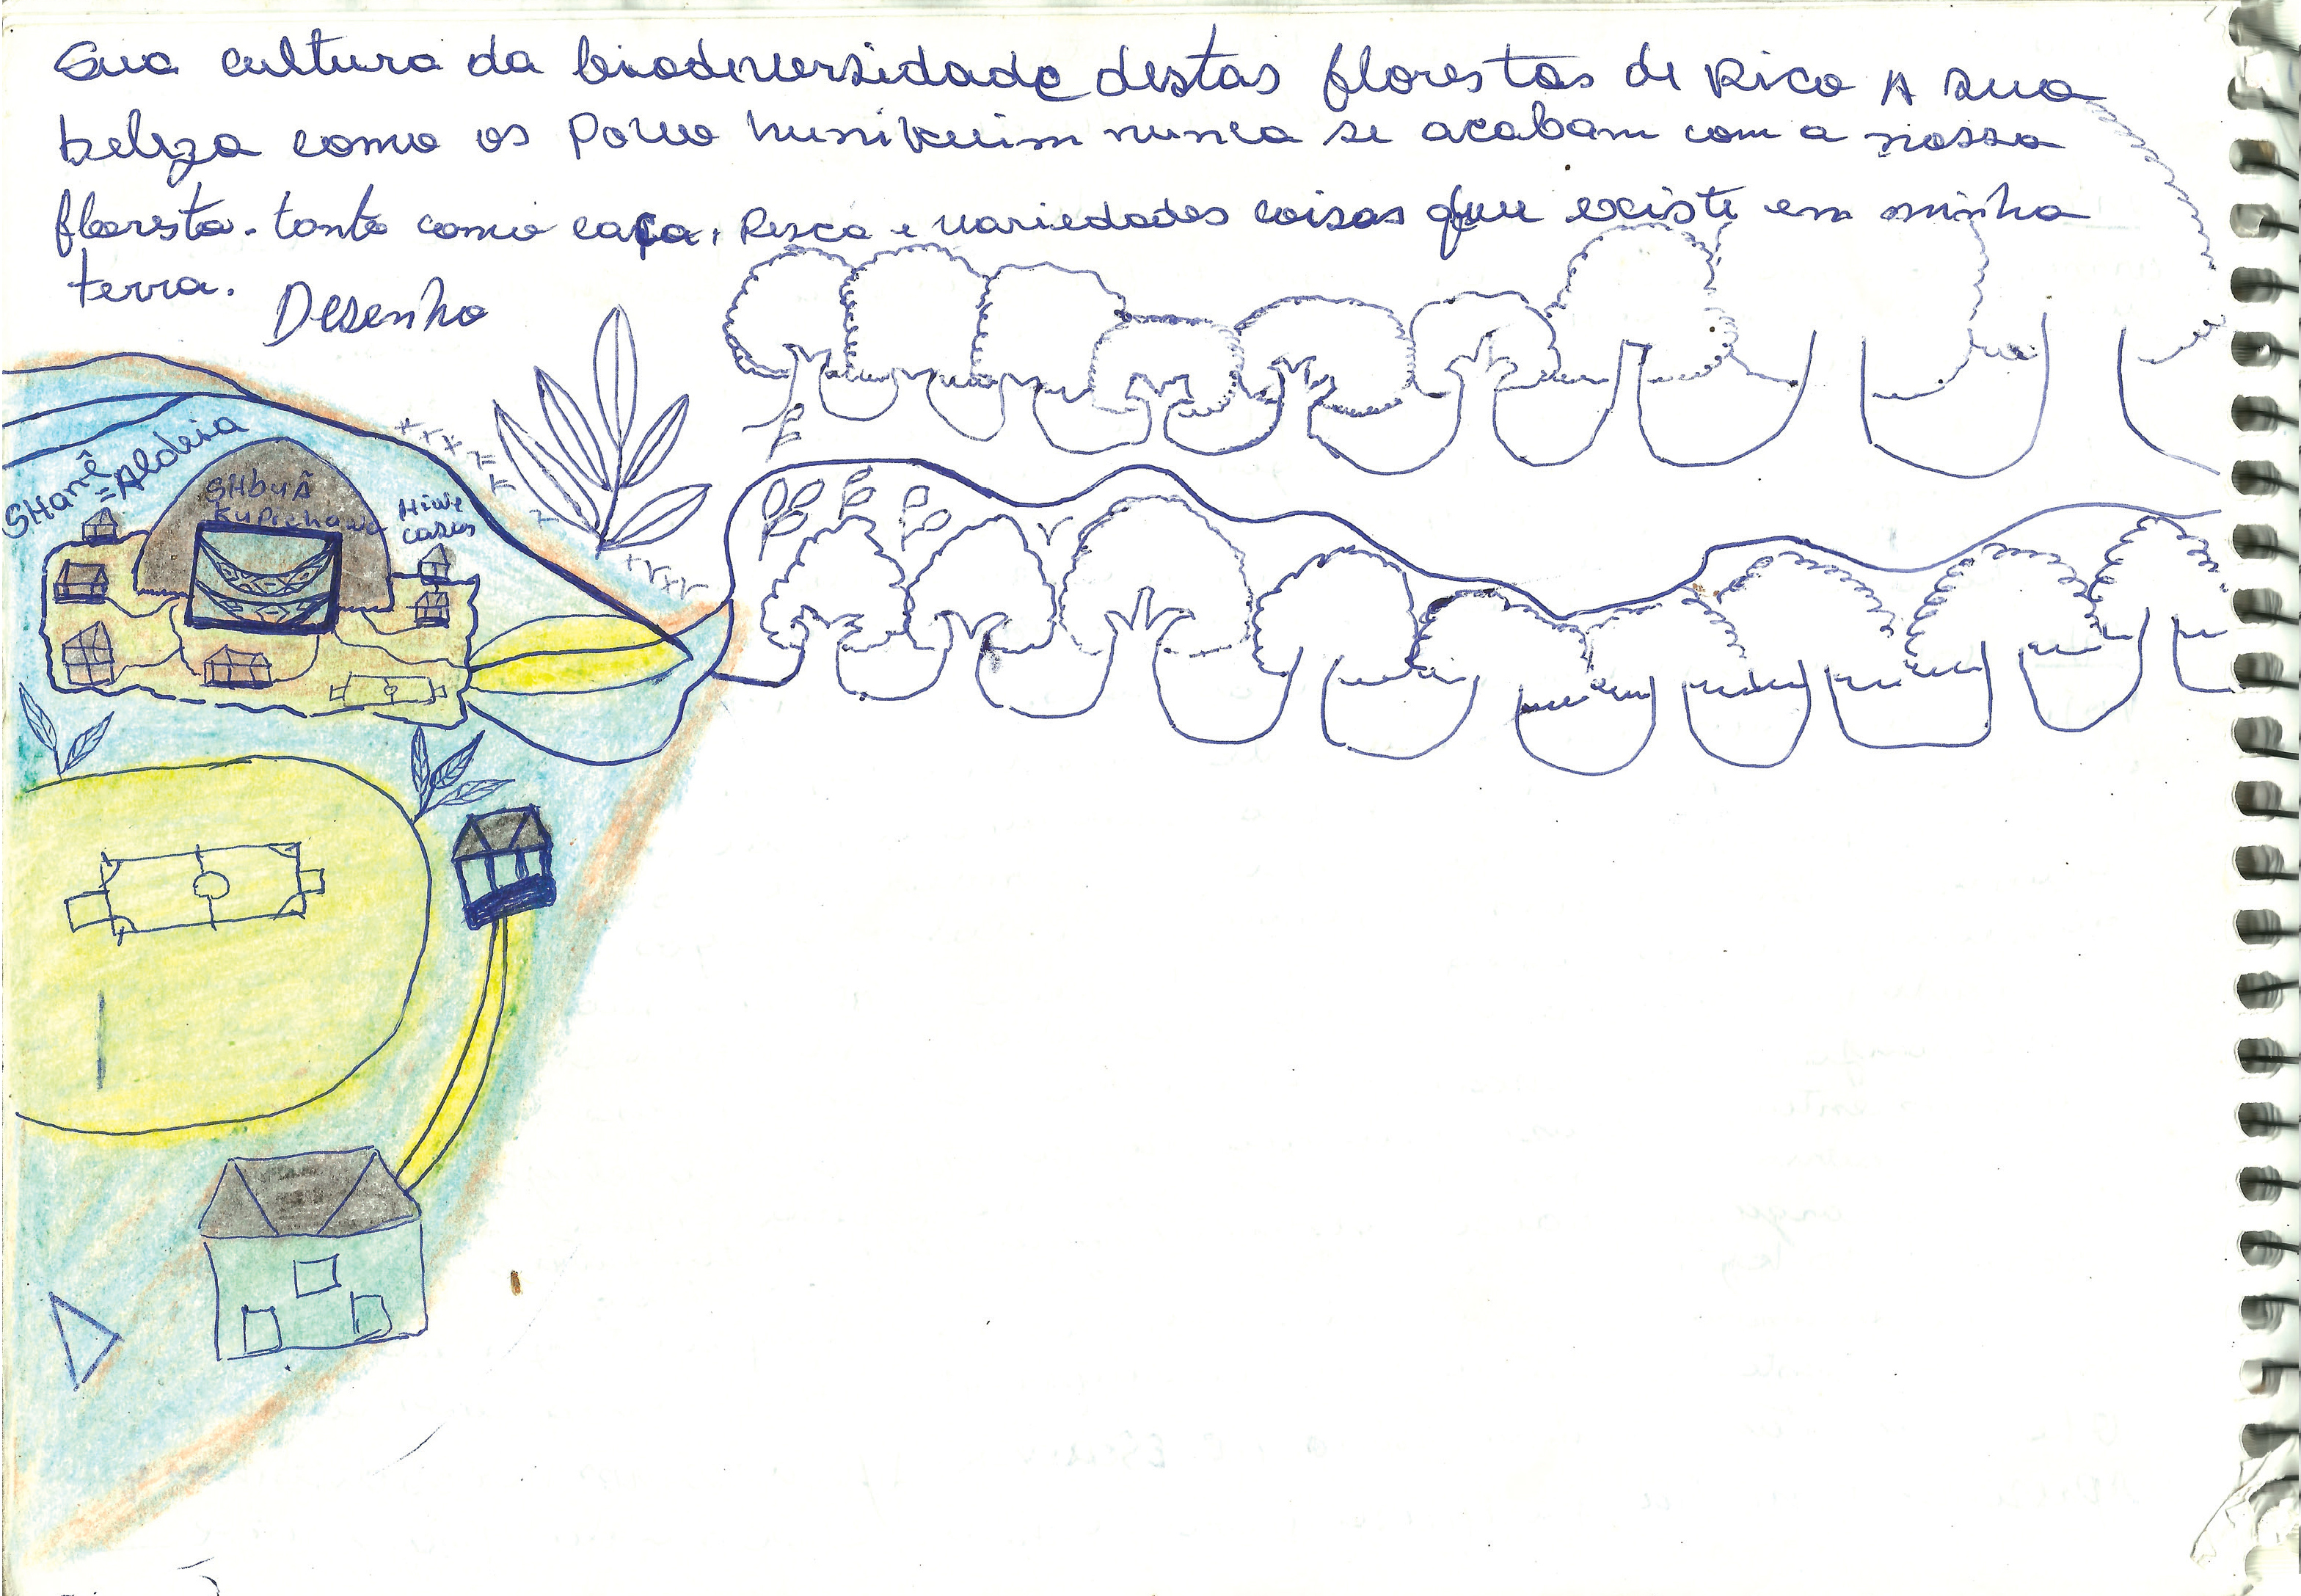 Sua cultura da biodiversidade destas florestas de Rico A sua
beleza como os Povo hunikuim nunca se acabam com a nossa
floresta. tanto como caça, Pesca e variedades coisas que existe em minha
terra.
Desenho
SHanê
=Aldeia
SHbuÃ
Kupichawa
Hiwe
casas